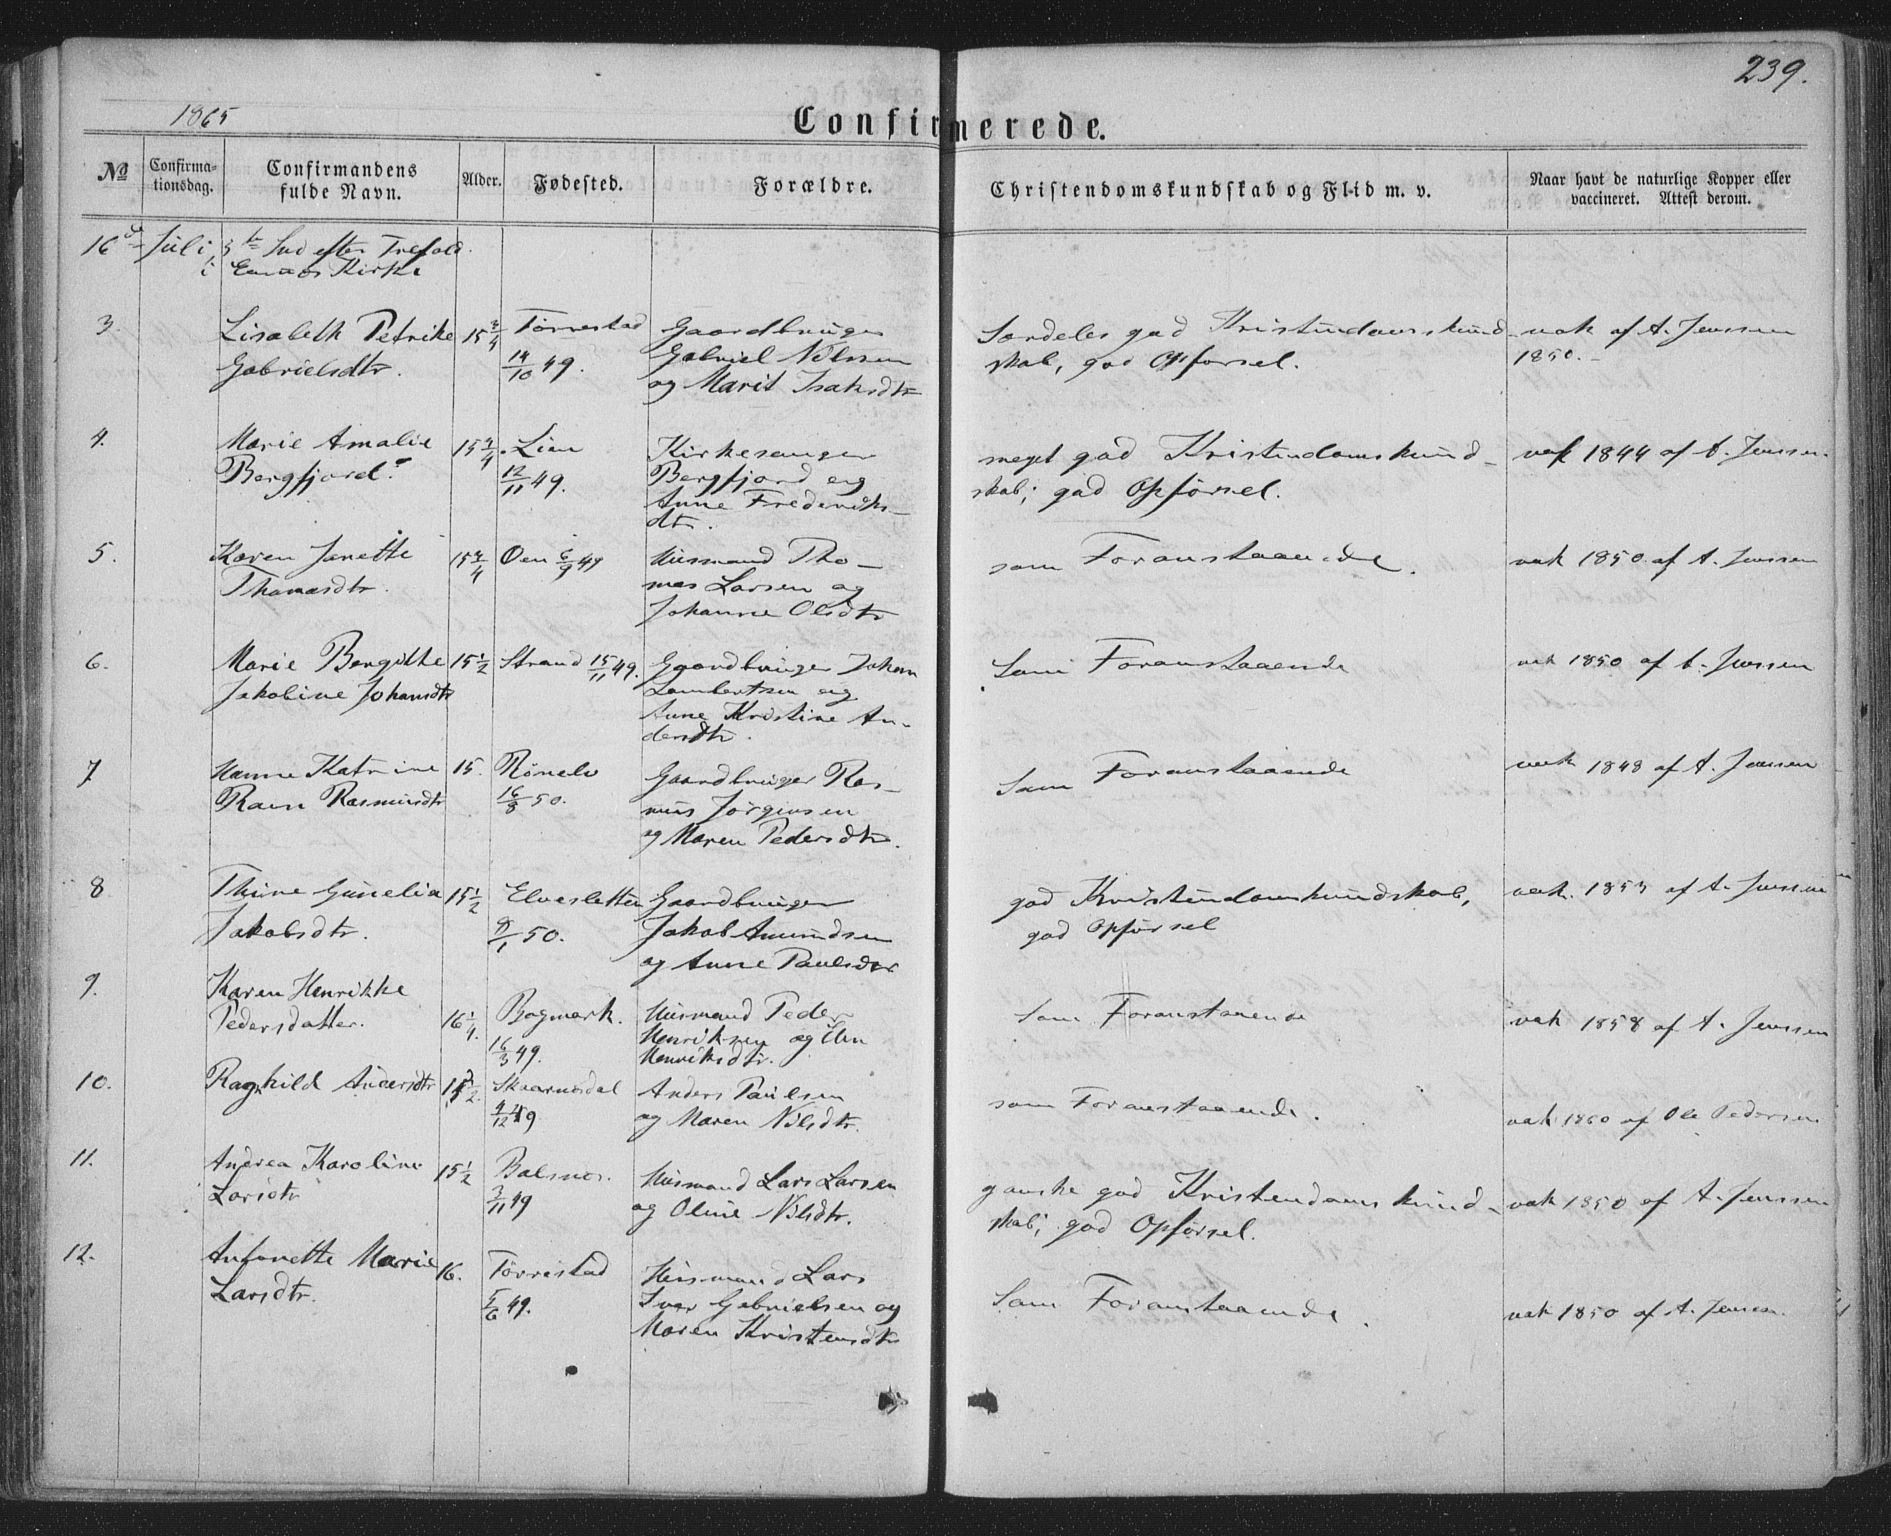 239.
1865
Confirmerede.
No
Confirma-
tionsdag.
Confirmandens
fulde Navn.
Alder.
Fødested.
Forældre.
Christendomskundskab og Flid m. v.
Naar havt de naturlige Kopper eller
vaccineret. Attest derom.
16de Juli, 5te Snd efter Trefold.
i Kirke
3.
Lisabeth Petrike
Gabrielsdtr.
15 3/4
Torrestad
14/10 49.
Gaardbruger
Gabriel Nilssen
og Marit Isaksdtr
Særdeles god Kristendomskund-
skab, god Opførsel.
vak af A. Jenssen
1850.
4.
Marie Amalie
Bergfjord.
15 3/4
Lien
12/11 49.
Kirkesanger
Bergfjord og
Anne Frederiks-
dtr.
meget god Kristendomskund-
skab; god Opførsel.
vak 1844 af A. Jenssen.
5.
Karen Janette
Thomasdtr.
15 3/4
Øen 6/9 49
Husmand Tho-
mas Larsen og
Johanne Olsdtr
som Foranstaaende.
vak 1850 af A. Jenssen
6.
Marie Bergithe
Jakobine Johansdtr
15 1/2
Strand 15/11 49.
Gaardbruger Johan
Lambertsen og
Anne Kristine An-
dersdtr.
Som Foranstaaende
vak 1850 af A. Jenssen
7
Hanne Katrine
Rasmusdtr
15.
16/3 50.
Gaardbruger Ras-
mus Jørgensen
og Maren Pedersdtr.
Som Foranstaaende
vak 1848 af A. Jenssen
8
Gunelia
Jakobsdtr.
15 1/2
Elvesletten
9/1 50.
Gaardbruger
Jakob Amundsen
og Anne Paulsdtr
god Kristendomskundskab,
god Opførsel
vak. 1853 af A. Jenssen
9.
Karen Henrikke
Pedersdatter.
16 1/4.
Bogmark.
16/3 49.
Husmand Peder
Henriksen og Elen
Henriksdtr.
Som Foranstaaende
vak 1858 af A. Jenssen
10.
Ragnhild Andersdtr
15 1/2.
Skaarnesdal
4/12 49
Anders Paulsen
og Maren Nilsdtr.
som Foranstaaende.
vak 1860 af Ole Pedersen
11.
Andrea Karoline
Larsdtr
15 1/2
Balsnes.
3/11 49
Husmand Lars Larsen
og Oline Nilsdtr.
ganske god Kristendomskund-
skab; god Opførsel.
vak 1850 af A. Jenssen
12.
Antonette Marie
Larsdtr.
16.
Torrestad
5/6 49.
Husmand Lars
Iver Gabrielsen og
Maren Kristensdtr
Som Foranstaaende.
vak 1850 af A. Jenssen.